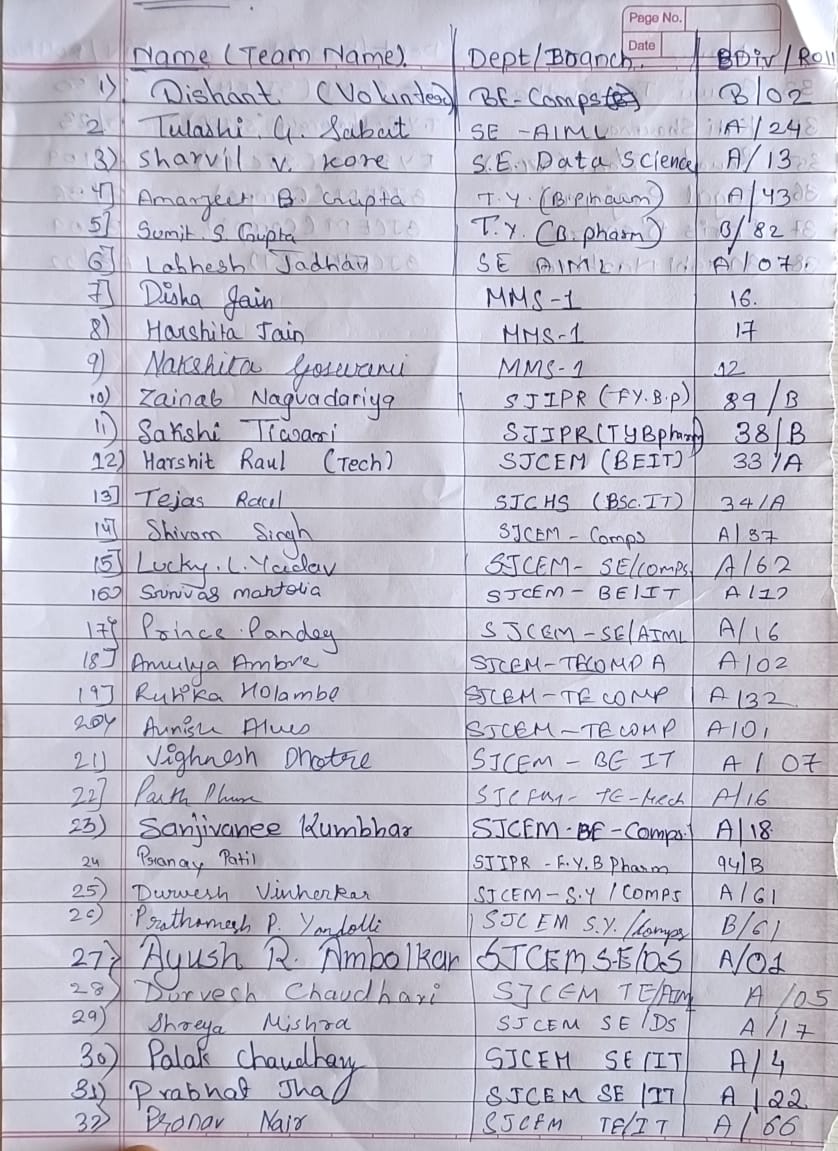 Page No.
Date
Name (Team Name). Dept/Branch. Div/Roll
1) Dishant (Volunteer) BE-Comps B/02
2 Tulashi. G. Sabat SE-AIML A/24
3) Sharvil V. Kore S.E. Data Science A/13
4] Amarjeet B. Gupta T.Y. (B.Pharm) A/43
5] Sumit. S. Gupta T.Y. (B.pharm) B/82
6] Labhesh Jadhav SE AIML A/07.
7] Disha Jain MMS-1 16.
8) Harshita Jain MMS-1 17
9) Nakshita Goswami MMS-1 12
10) Zainab Nagvadariya SJIPR (FY.B.P) 89/B
11) Sakshi Tiwari SJIPR (TYBpharm) 38/B
12) Harshit Raul (Tech) SJCEM (BEIT) 33/A
13] Tejas Raul SJCHS (BSc.IT) 34/A
14] Shivam Singh SJCEM - Comps A/37
15] Lucky. L. Yadav SJCEM - SE/comps A/62
16) Srinivas mantolia SJCEM - BE/IT A/17
17) Prince Pandey SJCEM-SE/AIML A/16
18] Amulya Ambre SJCEM-TECOMP A A/02
19] Rutika Holambe SJCEM-TE COMP A/32
20) SJCEM-TE COMP A/01
21) Vighnesh Dhotre SJCEM - BE IT A/07
22] Parth SJCEM - TE-Mech A/16
23) Sanjivanee Kumbhar SJCEM-BE-Comps A/18
24 Pranay Patil SJIPR - F.Y. B Pharm 94/B
25) Durvesh Vinherkar SJCEM-S.Y/COMPS A/61
26) Prathamesh P. Yandolli SJCEM S.Y./Comps B/61
27) Ayush R. Ambolkar SJCEM S.E/DS A/01
28) Durvesh Chaudhari SJCEM A/05
29) Shreya Mishra SJCEM SE/DS A/17
30) Palak Chaudhary SJCEM SE/IT A/4
31) Prabhat Jha SJCEM SE/IT A/22
32) Pranav Nair SJCEM TE/IT A/66